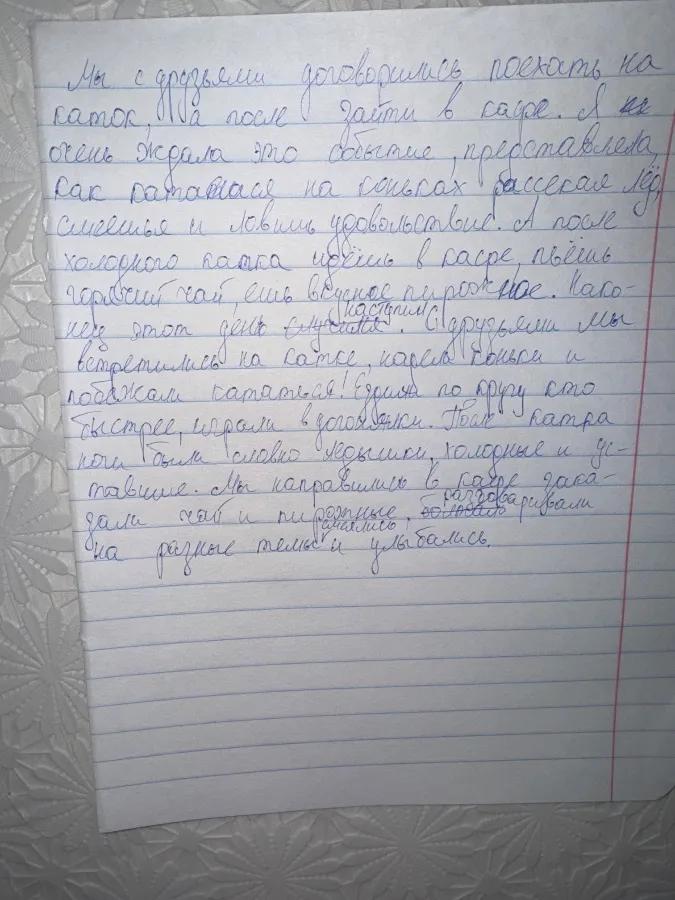 Мы с друзьями договорились поехать на
каток, а после зайти в кафе. Я
очень ждала это событие, представляла
как катаешься на коньках рассекая лёд,
смеешься и ловишь удовольствие. А после
холодного катка идёшь в кафе, пьёшь
горячий чай, ешь вкусное пирожное. Нако-
нец этот день наступил. С друзьями мы
встретились на катке, надели коньки и
побежали кататься! Ездили по кругу кто
быстрее, играли в догонялки. После катка
ноги были словно ледышки, холодные и ус-
тавшие. Мы направились в кафе зака-
зали чай и пирожные, разговаривали
на разные темы смеялись и улыбались.